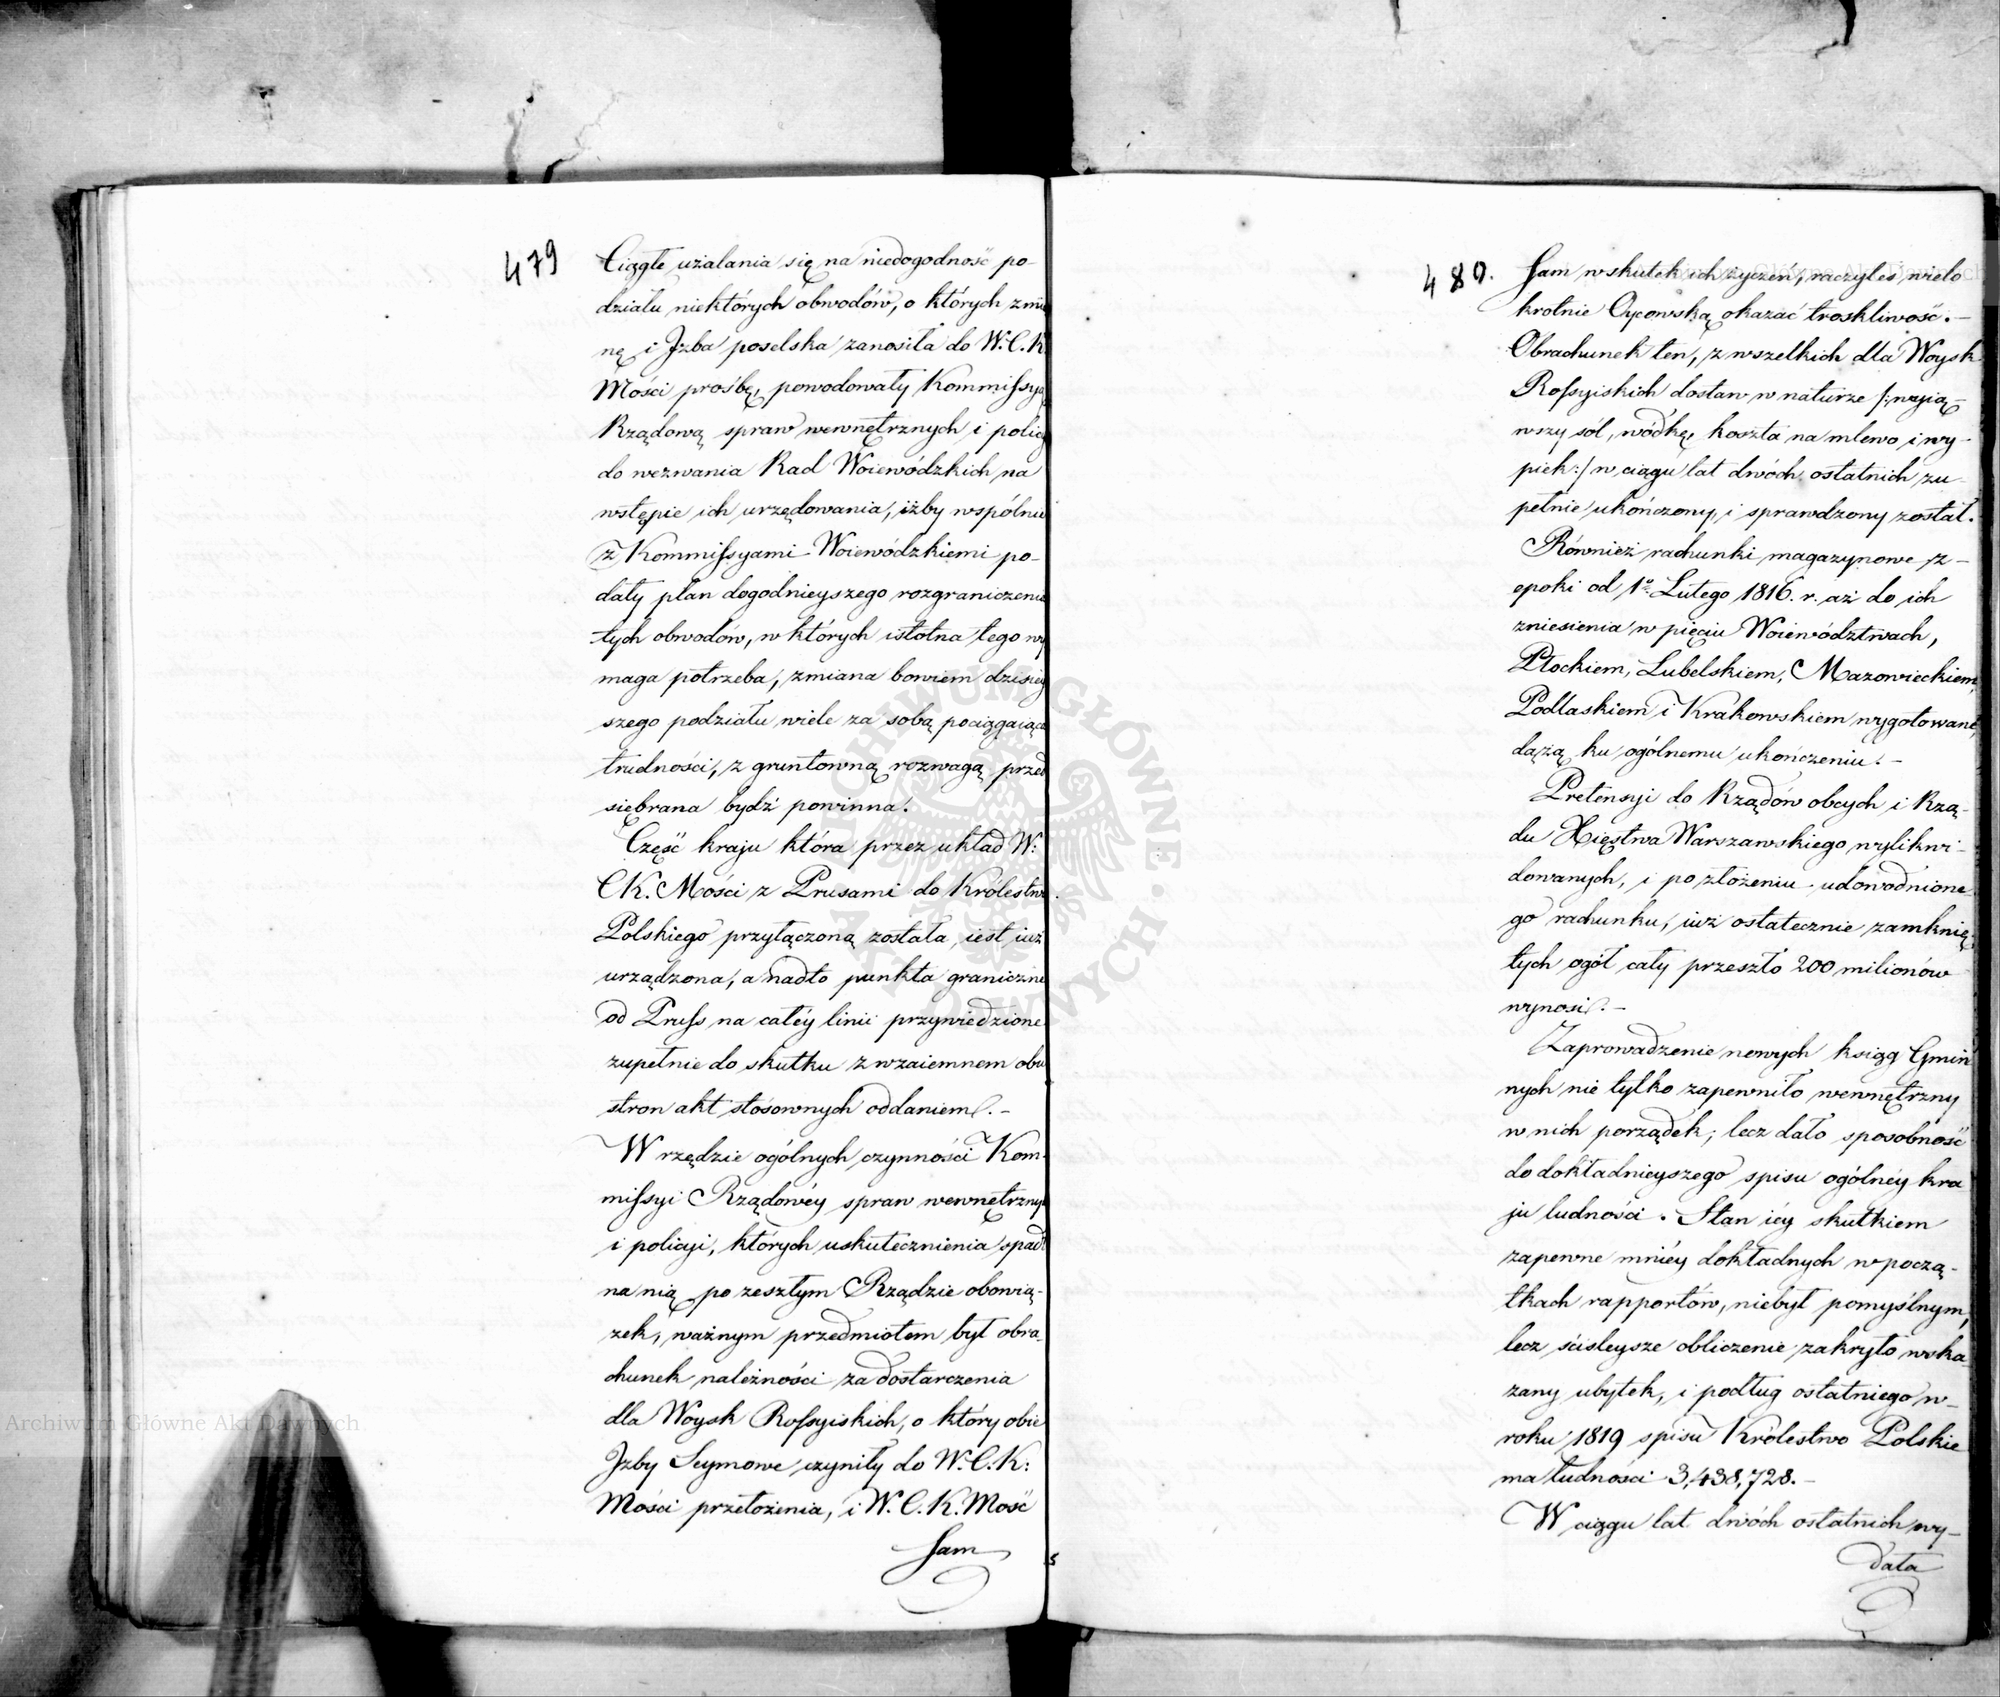 479
Ciągłe użalania się na niedogodność po-
działu niektórych obwodów, o których zmia
nę i Jzba poselska zanosiła do W.C.K.
Mości prośbę, powodowały Kommissyą
Rządową spraw wewnętrznych i policyi
do wezwania Rad Woiewódzkich na
wstępie ich urzędowania, iżby wspólnie
z Kommissyami Woiewódzkiemi po-
dały plan dogodnieyszego rozgraniczenia
tych obwodów, w których istotna tego wy
maga potrzeba, zmiana bowiem dzisiey
szego podziału wiele za sobą pociągaiąca
trudności, z gruntowną rozwagą przed
siębrana bydź powinna.
Część kraju która przez układ W:
C K. Mości z Prusami do Królestwa
Polskiego przyłączoną została, iest iuż
urządzona, a nadto punkta graniczne
od Pruss na całéy linii przywiedzione
zupełnie do skutku z wzaiemnem obu
stron akt stosownych oddaniem. -
W rzędzie ogólnych czynności Kom-
missyi Rządowéy spraw wewnętrznych
i policyi, których uskutecznienia spadł
na nią po zeszłym Rządzie obowią-
zek, ważnym przedmiotem był obra-
chunek należności za dostarczenia
dla Woysk Rossyiskich, o który obie
Jzby Seymowe czyniły do W.C.K:
Mości przełożenia, i W.C.K. Mość
Sam
480.
Sam w skutek ich życzeń, raczyłeś wielo
krotnie Oycowską okazać troskliwość. -
Obrachunek ten, z wszelkich dla Woysk
Rossyiskich dostaw w naturze /: wyią-
wszy sól, wódkę, koszta na mlewo i wy-
piek :/ w ciągu lat dwóch ostatnich zu-
pełnie ukończony i sprawdzony został.
Również rachunki magazynowe z-
epoki od 1º Lutego 1816. r. aż do ich
zniesienia w pięciu Woiewództwach,
Płockiem, Lubelskiem, Mazowieckiem,
Podlaskiem i Krakowskiem wygotowane,
dążą ku ogólnemu ukończeniu. -
Pretensyi do Rządów obcych i Rzą-
du Xięstwa Warszawskiego wylikwi-
dowanych, i po złożeniu udowodnione
go rachunku, iuż ostatecznie zamknię-
tych ogół cały przeszło 200 milionów
wynosi. -
Zaprowadzenie nowych ksiąg Gmin
nych nie tylko zapewniło wewnętrzny
w nich porządek; lecz dało sposobność
do dokładnieyszego spisu ogólnéy kra
ju ludności. Stan iéy skutkiem
zapewne mniéy dokładnych w począ-
tkach rapportów, niebył pomyślnym,
lecz ścisleysze obliczenie zakryło wska
zany ubytek, i podług ostatniego w-
roku 1819 spisu Królestwo Polskie
ma ludności 3,438,728. -
W ciągu lat dwóch ostatnich wy-
dała
Archiwum Główne Akt Dawnych
ARCHIWUM GŁÓWNE AKT DAWNYCH